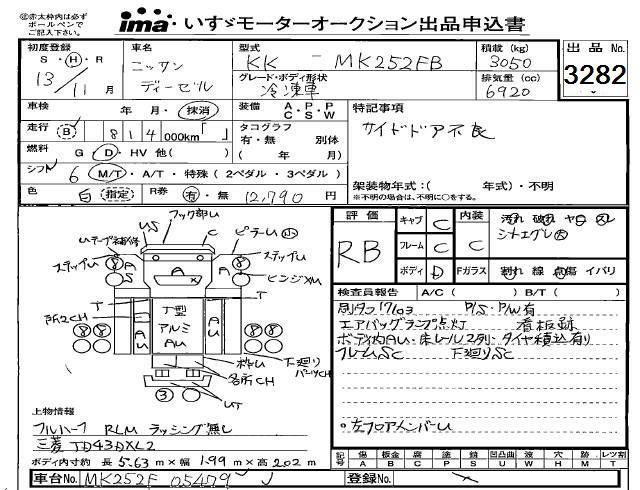 ㊟赤太枠内は必ず
ボールペンで
ご記入下さい。
ima いすゞモーターオークション出品申込書
初度登録 S・H・R 13/11月
車名 ニッサン ディーゼル
型式 KK-MK252FB
グレード・ボディ形状 冷凍車
積載(kg) 3050
排気量(cc) 6920
出品No. 3282
車検 年 月・抹消
装備 A・P・P
C・S・W
特記事項
サイドドア不良
走行 B 814000km「 」
タコグラフ 有・無 別体
( 年 月)
燃料 G D・HV 他( )
シフト 6 M/T・A/T・特殊(2ペダル・3ペダル)
架装物年式:( 年式)・不明
※不明の場合は、不明に○をする。
色 白 指定 R券 有・無 12,790円
評価 RB
キャブ C 内装 C
フレーム C
ボディ D Fガラス 割れ 線 点傷 イバリ
汚れ 破れ ヤロ スレ
シートエグレ大
フック部U
US
C
ピラーU小
ステップU
ステップU
ヒンジメU
T
T
T型
アルミ
AU
AU
AU
A
AS
A
8
8
8
8
3
所々CH
下廻り
パーツCH
各所CH
UT
検査員報告 A/C( ) B/T( )
別タコ17/03 P/S・P/W有
エアバッグランプ点灯 看板跡
ボディ内AU・床レール2列・タイヤ積込有り
フレームSC 下廻りSC
○左フロアメンバーU
上物情報
フルハーフ RLM ラッシング無し
三菱 TD43DXL2
ボディ内寸約 長5.63m×幅1.99m×高2.02m
記号 傷 板金 腐 塗 錆 凹凸曲 波 穴 跡 レツ割
A B C P S U W H M T
車台No. MK252F 05479
登録No.